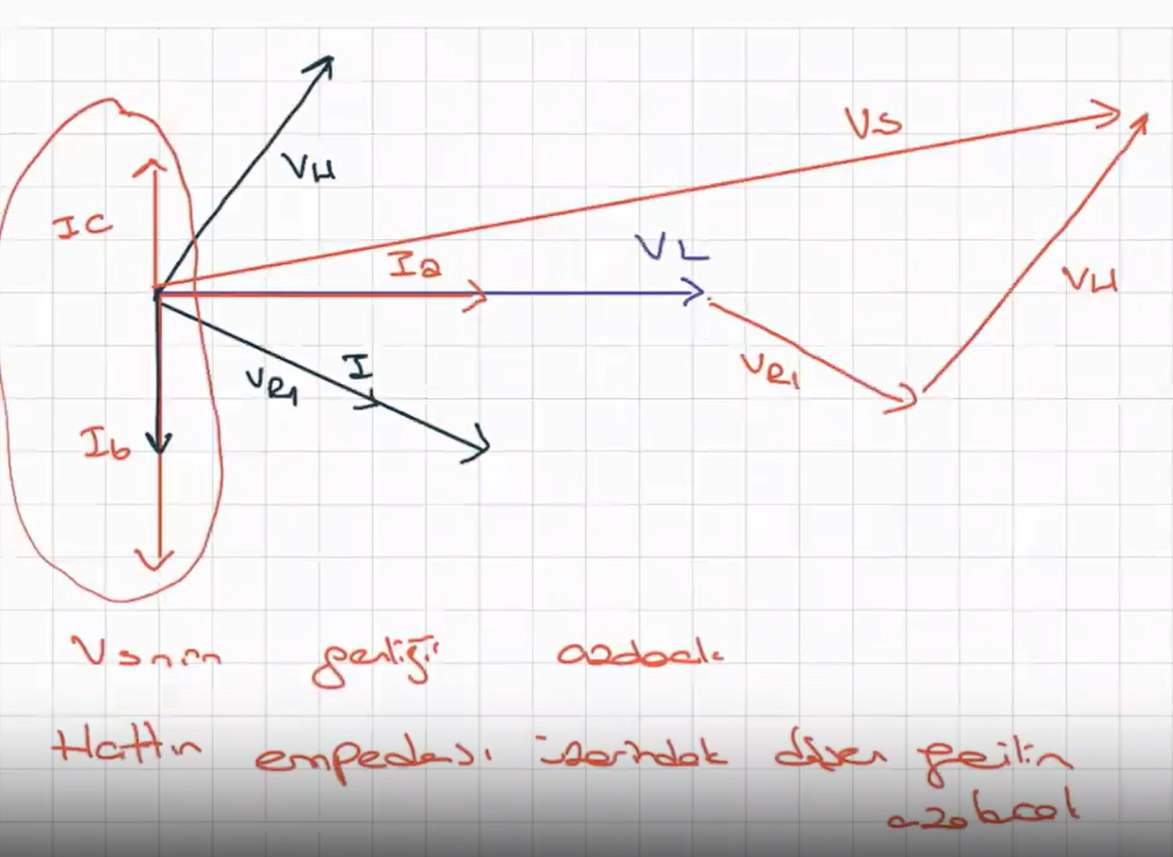 VH
VS
IC
VL
Ia
VH
I
VR1
VR1
Ib
Vsnin gerliği azalacak
Hattın empedansı üzerindek düşen gerilin
azalacak